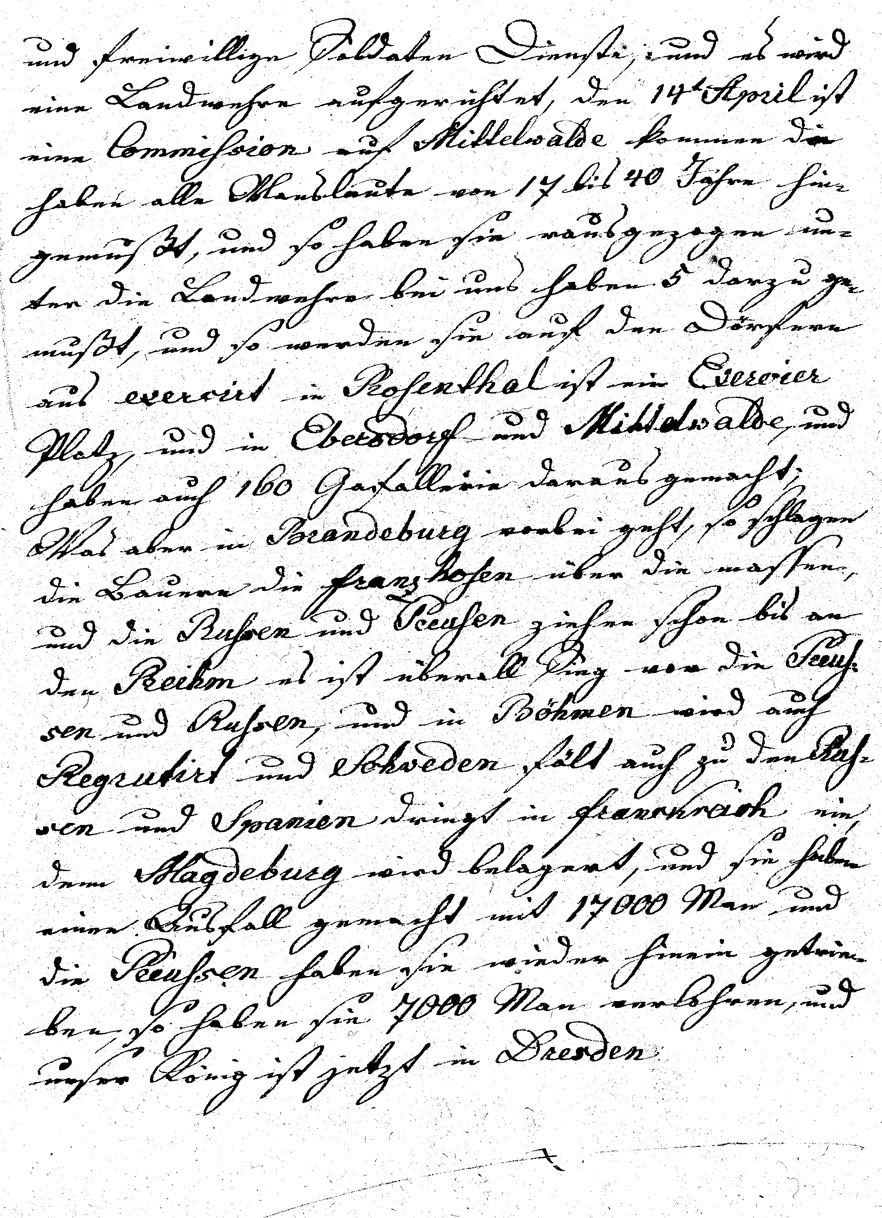 und freiwillige Soldaten Dienste, und es wird
eine Landwehre aufgerichtet, den 14t April ist
eine Commission auf Mittelwalde kommen die
haben alle Mansläute von 17 bis 40 Jahre hin-
gemußt, und so haben sie rausgezogen un-
ter die Landwehre bei uns haben 5 darzu ge-
mußt, und so werden sie auf den Dörfern
aus exercirt in Rosenthal ist ein Exercier
Platz, und in Ebersdorf und Mittelwalde, und
haben auch 160 Gafallerie daraus gemacht;
Was aber in Brandeburg vorbei geht, so schlagen
die Bauern die franzhosen über die massen,
und die Russen und Preusen ziehen schon bis an
den Reihm es ist überall Sieg vor die Preus-
sen und Russen, und in Böhmen wird auch
Regrutirt und Schweden fält auch zu den Rus-
sen und Spanien dringt in franckreich ein,
denn Magdeburg wird belagert, und sie haben
einen Ausfall gemacht mit 17000 Man und
die Preussen haben sie wieder hinein getrie-
ben, so haben sie 7000 Man verlohren, und
unser König ist jetzt in Dresden